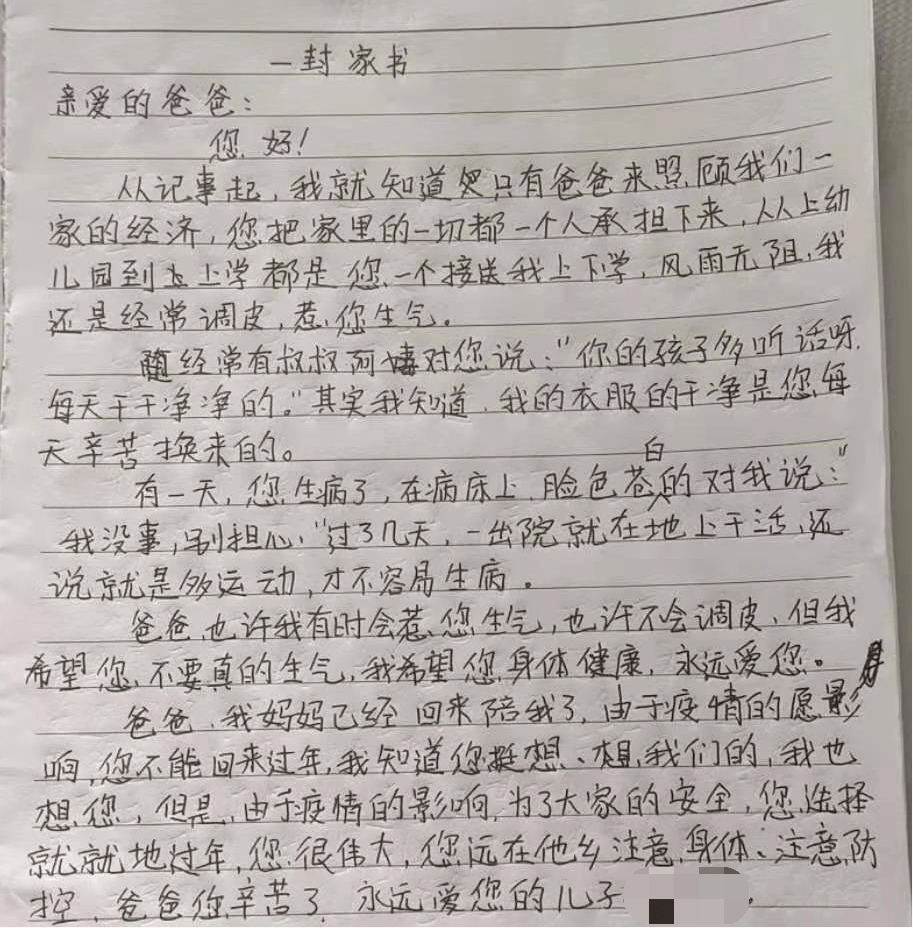 一封家书
亲爱的爸爸：
您好！
从记事起，我就知道只有爸爸来照顾我们一
家的经济，您把家里的一切都一个人承担下来，从上幼
儿园到上学都是您一个接送我上下学，风雨无阻，我
还是经常调皮，惹您生气。
经常有叔叔阿姨对您说：“你的孩子多听话呀，
每天干干净净的。”其实我知道，我的衣服的干净是您每
天辛苦换来的。
有一天，您生病了，在病床上，脸色苍白的对我说：“
我没事，别担心，“过了几天，一出院就在地上干活，还
说就是多运动，才不容易生病。
爸爸，也许我有时会惹您生气，也许不会调皮，但我
希望您，不要真的生气，我希望您身体健康，永远爱您。
爸爸，我妈妈已经回来陪我了，由于疫情的影
响，您不能回来过年，我知道您挺想、想我们的，我也
想您，但是，由于疫情的影响，为了大家的安全，您选择
就就地过年，您很伟大，您远在他乡注意身体、注意防
控，爸爸您辛苦了，永远爱您的儿子